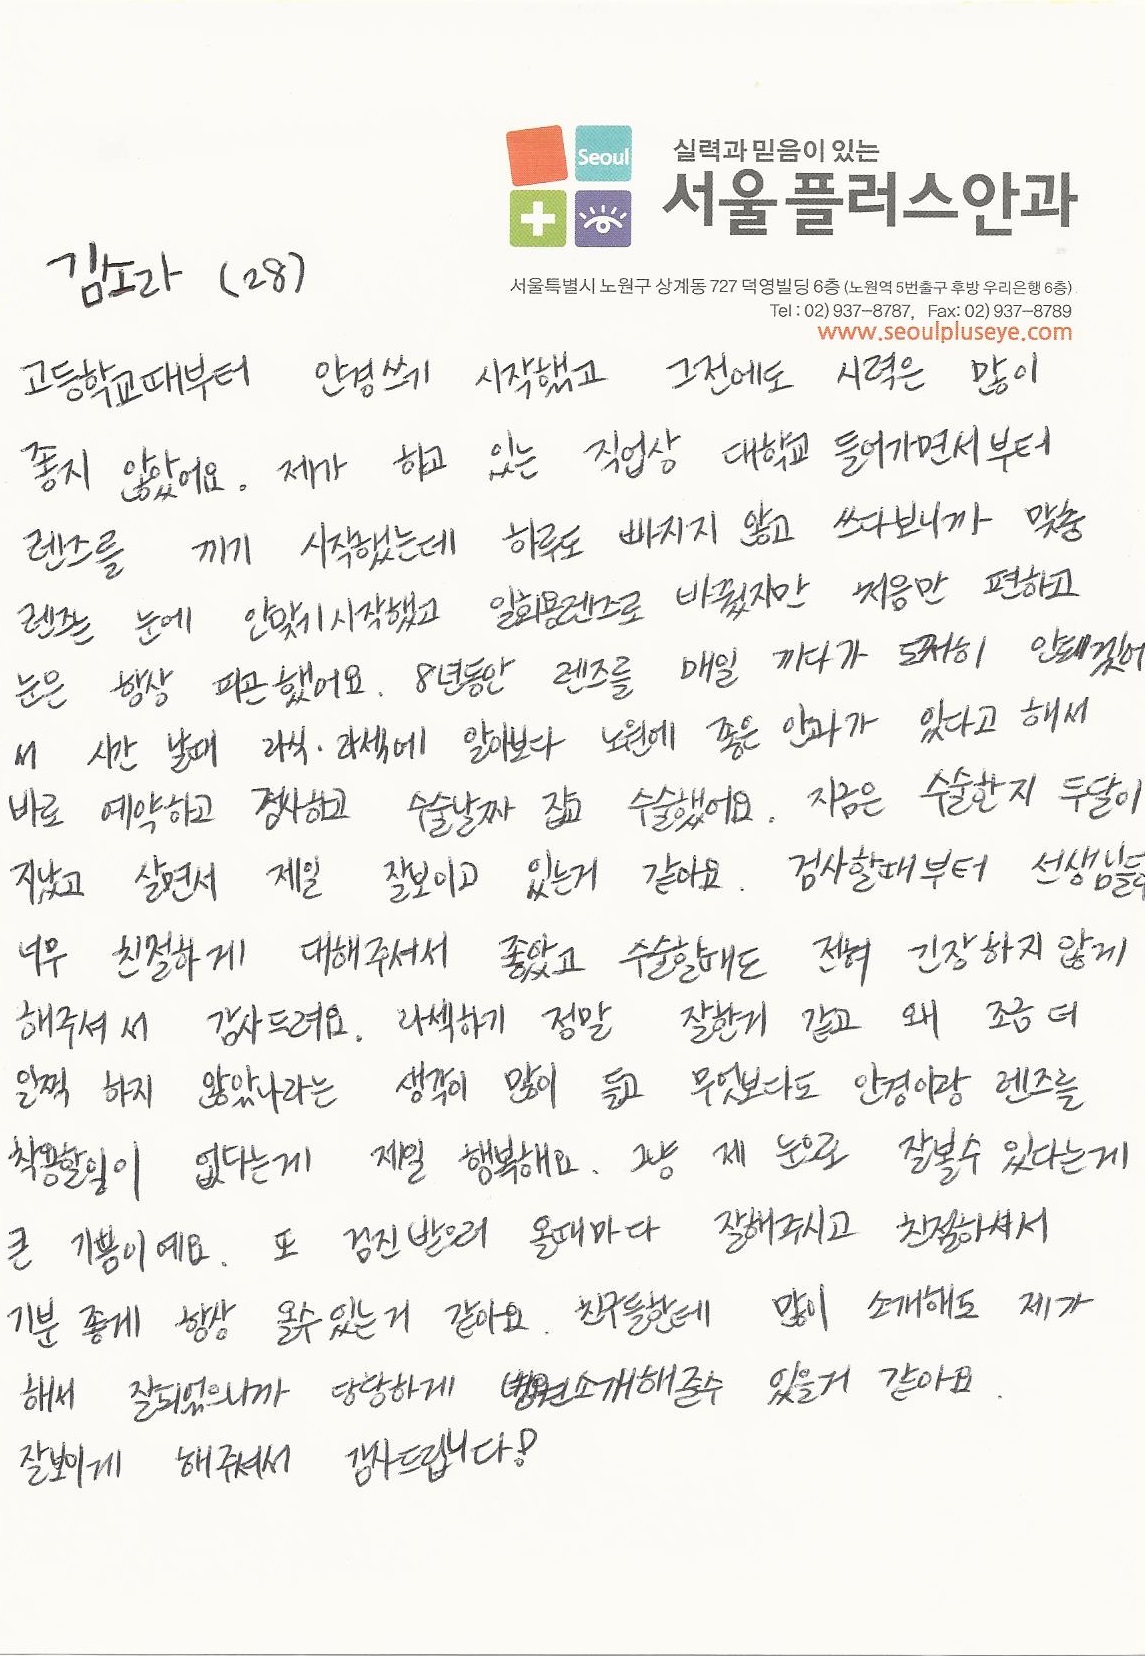 Seoul
실력과 믿음이 있는
서울플러스안과
서울특별시 노원구 상계동 727 덕영빌딩 6층 (노원역 5번출구 후방 우리은행 6층)
Tel : 02) 937-8787, Fax: 02) 937-8789
www.seoulpluseye.com
김소라 (28)
고등학교때부터 안경쓰기 시작했고 그전에도 시력은 많이
좋지 않았어요. 제가 하고 있는 직업상 대학교 들어가면서부터
렌즈를 끼기 시작했는데 하루도 빠지지 않고 쓰다보니까 맞춤
렌즈는 눈에 안맞기시작했고 일회용렌즈로 바꿨지만 처음만 편하고
눈은 항상 피곤했어요. 8년동안 렌즈를 매일 끼다가 도저히 안돼겠어
서 시간 날때 라식·라섹에 알아보다 노원에 좋은 안과가 있다고 해서
바로 예약하고 검사하고 수술날짜 잡고 수술했어요. 지금은 수술한지 두달이
지났고 살면서 제일 잘보이고 있는거 같아요. 검사할때부터 선생님들이
너무 친절하게 대해주셔서 좋았고 수술할때도 전혀 긴장하지않게
해주셔서 감사드려요. 라섹하기 정말 잘한거 같고 왜 조금 더
일찍 하지 않았나라는 생각이 많이 들고 무엇보다도 안경이랑 렌즈를
착용할일이 없다는게 제일 행복해요. 그냥 제 눈으로 잘볼수 있다는게
큰 기쁨이예요. 또 검진받으러 올때마다 잘해주시고 친절하셔서
기분 좋게 항상 올수있는거 같아요. 친구들한테 많이 소개해도 제가
해서 잘되었으니까 당당하게 병원소개해줄수 있을거 같아요.
잘보이게 해주셔서 감사드립니다!